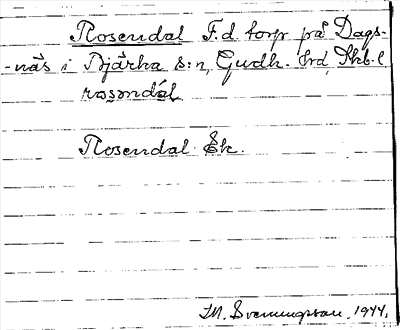 Rosendal F.d. torp på Dags-
-näs i Bjärka s:n, Gudh. hrd, Skb. l
rosəndál
Rosendal Ek.
M. Svenungsson. 1944.